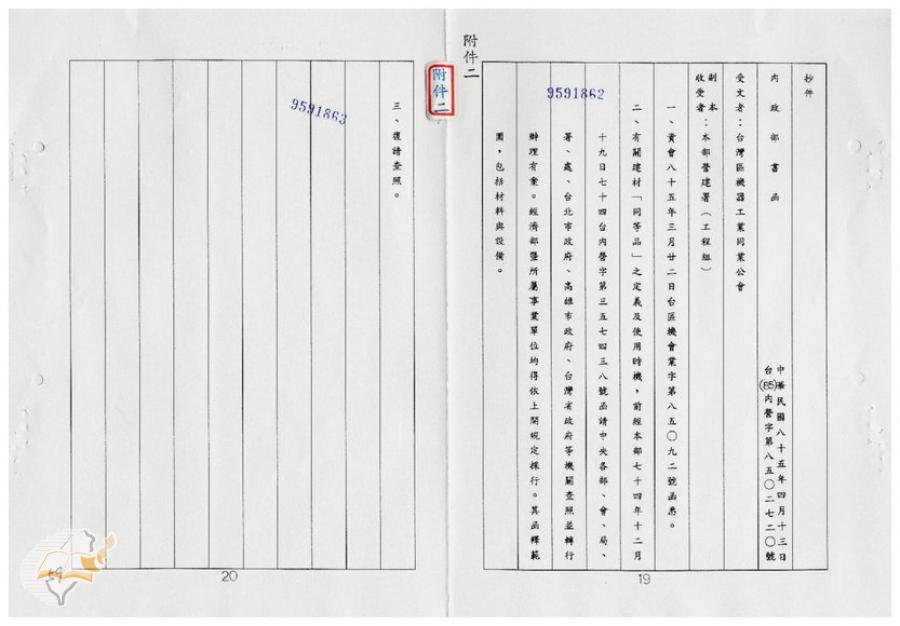 附件二
9591862
抄件
內政部書函
中華民國八十五年四月十三日
台(85)內營字第八五〇二七二〇號
受文者：台灣區機器工業同業公會
副本
收受者：本部營建署(工程組)
一、貴會八十五年三月廿二日台區機會業字第八五〇九二號函悉。
二、有關建材「同等品」之定義及使用時機，前經本部七十四年十二月
十九日七十四台內營字第三五七四三八號函請中央各部、會、局、
署、處、台北市政府、高雄市政府、台灣省政府等機關查照並轉行
辦理有案。經濟部暨所屬事業單位均得依上開規定採行。其函釋範
圍，包括材料與設備。
19
附件二
9591863
三、復請查照。
20